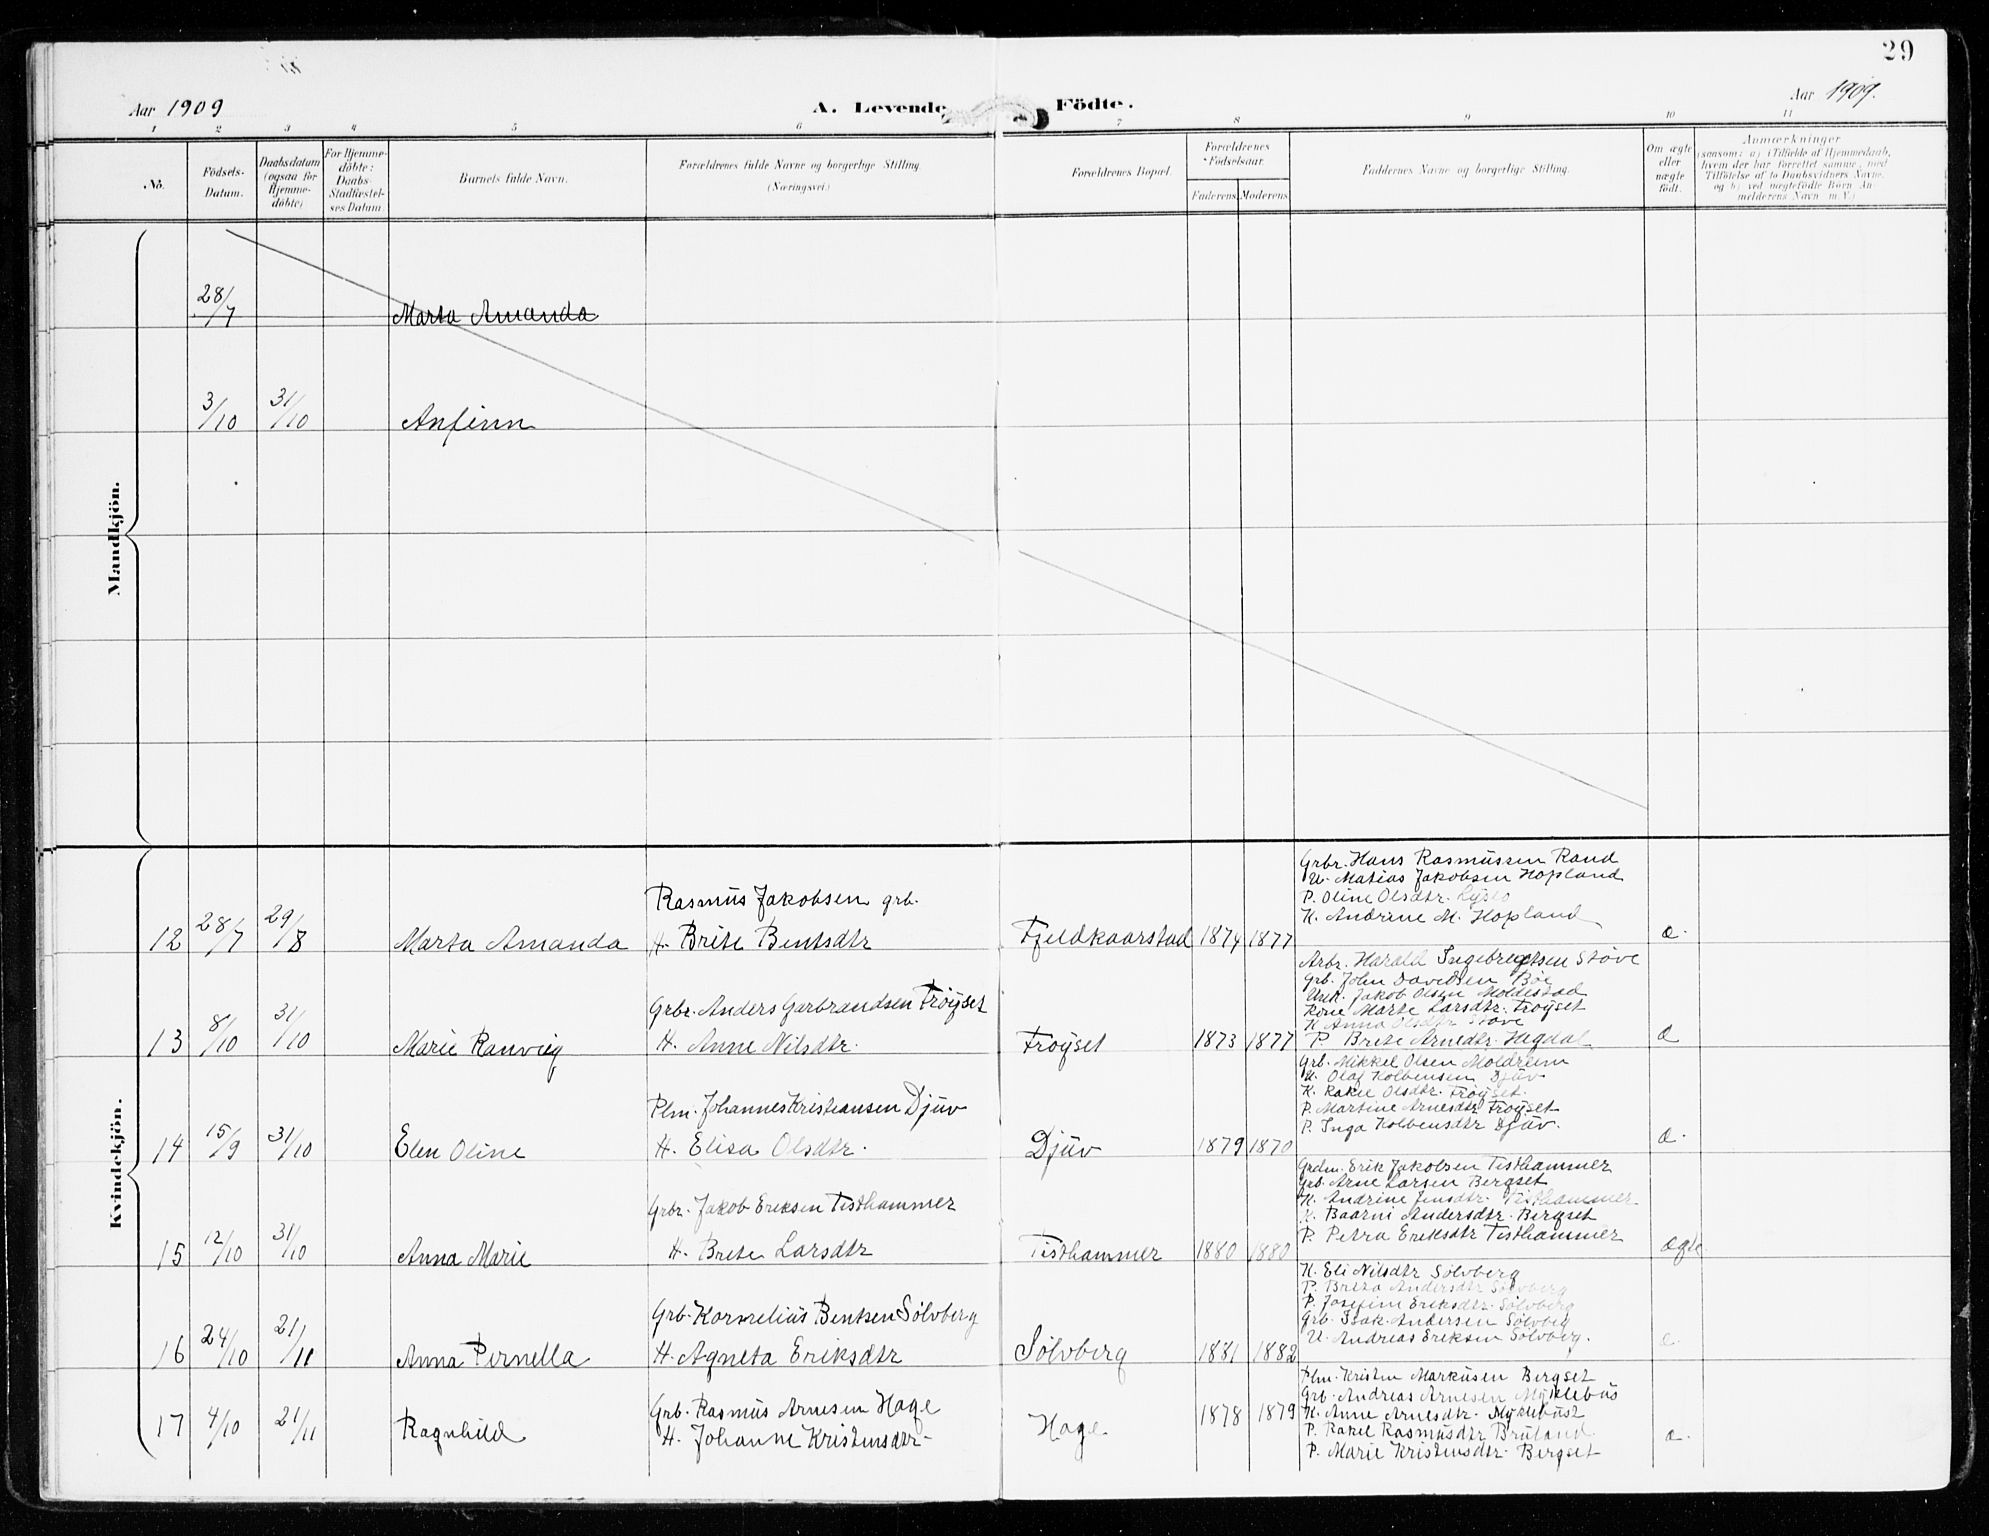 29
Aar 1909
A. Levende Födte.
Aar 1909.
1 2 3 4 5 6 7 8 9 10 11
No.
Födsels-Datum.
Daabsdatum (ogsaa for Hjemme-döbte)
For Hjemme-döbte: Daabs-Stadfæstel-ses Datum
Barnets fulde Navn.
Forældrenes fulde Navne og borgerlige Stilling.
(Næringsvei)
Forældrenes Bopæl.
Forældrenes Födselsaar.
Faderens. Moderens.
Faddernes Navne og borgerlige Stilling.
Om ægte eller uægte födt.
Anmærkninger
(saasom: a) i Tilfælde af Hjemmedaab, hvem der har forrettet samme, med Tilföielse af to Daabsvidners Navne, og b) ved uægtefödte Börn An-melderens Navn m.V.)
Mandkjön.
28/7 Marta Amanda
3/10 31/10 Anfinn
Kvindekjön.
12 28/7 29/8 Marta Amanda
Rasmus Jakobsen grb.
H. Brite Bentsdtr
Fjeldkaarstad 1874 1877
Grbr. Hans Rasmussen Rand
U. Matias Jakobsen Hopland
P. Oline Olsdtr.
K. Andrine M. Hopland
æ.
13 8/10 31/10 Marie Ranvieg
Grbr. Anders Garbrandsen Tröyset
H. Anne Nilsdtr.
Tröyset 1873 1877
Arbr. Harald Ingebregtsen Støve
Grb. John Davidsen Bøe
Unk. Jakob Olsen Moldestad
Kone Marte Larsdtr. Tröyset
K Anna Olsdtr Støve
P. Brite Arnedtr. Hegdal
æ
14 15/9 31/10 Elen Oline
Plm. Johannes Kristiansen Djuv
H. Elisa Olsdtr.
Djuv 1879 1870
Grb. Mikkel Olsen Moldreim
U. Olaf Kolbensen Djuv
K. Rakel Olsdtr. Tröyset.
P. Martine Arnesdtr Tröyset
P. Inga Kolbensdtr Djuv.
æ.
15 12/10 31/10 Anna Marie
Grbr. Jakob Eriksen Tisthammer
H. Brite Larsdtr
Tisthammer 1880 1880
Grdm. Erik Jakobsen Tisthammer
Grb. Arne Larsen Bergset
K. Andrine Jensdtr. Tisthammer.
K. Baarni Andersdtr. Bergset
P. Petra Eriksdtr Tisthammer
ægte
16 24/10 21/11 Anna Pernella
Grb. Kornelius Bentsen Sölvberg
H. Agneta Eriksdtr
Sölvberg 1881 1882
K. Eli Nilsdtr Sölvberg
P. Brita Andersdtr Sölvberg
P. Josefine Eriksdtr. Sölvberg
Grb. Isak Andersen Sölvberg
U. Andreas Eriksen Sölvberg.
æ
17 4/10 21/11 Ragnhild
Grb. Rasmus Arnesen Hage
H. Johanne Kristensdtr
Hage 1878 1879
Plm. Kristen Markusen Bergset
Grb. Andreas Arnesen Myklebus
K. Anne Arnesdtr. Myklebust
P. Rakel Rasmusdtr Bruland
P. Marie Kristensdtr. Bergset
æ.